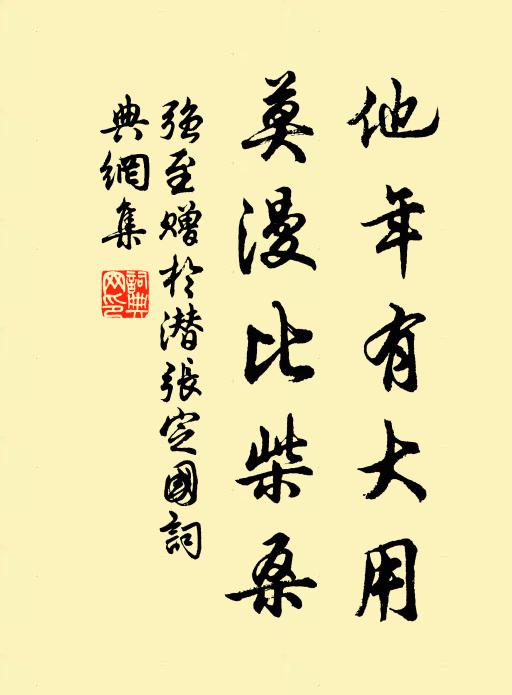 他年有大用
莫漫比柴桑
强至赠於潜張定國詞
典網集
詞典
网印